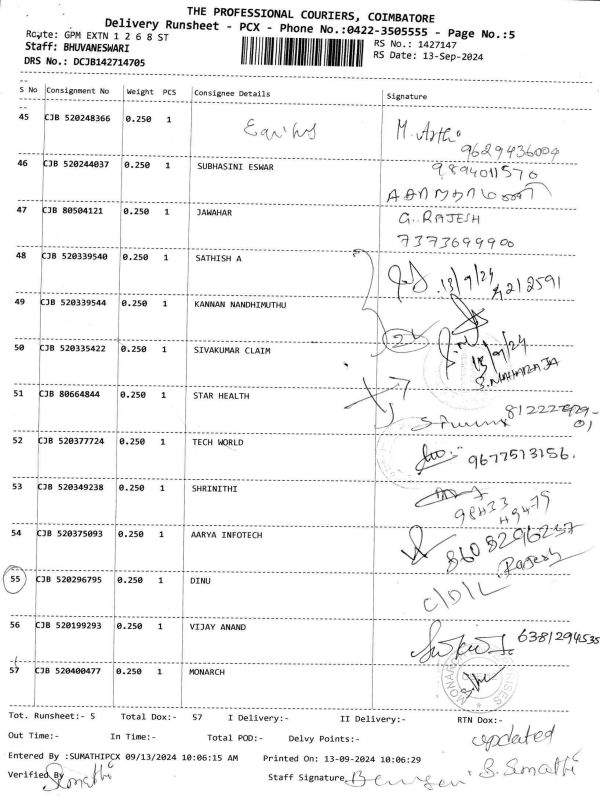 THE PROFESSIONAL COURIERS, COIMBATORE
Delivery Runsheet - PCX - Phone No.:0422-3505555 - Page No.:5
Route: GPM EXTN 1 2 6 8 ST
RS No.: 1427147
Staff: BHUVANESWARI
RS Date: 13-Sep-2024
DRS No.: DCJB142714705
S No Consignment No Weight PCS Consignee Details Signature
45 CJB 520248366 0.250 1 Equitas M. Arthi
9629436004
46 CJB 520244037 0.250 1 SUBHASINI ESWAR 9894011570
47 CJB 80504121 0.250 1 JAWAHAR G. RAJESH
7373699900
48 CJB 520339540 0.250 1 SATHISH A 13/9/24
49 CJB 520339544 0.250 1 KANNAN NANDHIMUTHU
50 CJB 520335422 0.250 1 SIVAKUMAR CLAIM 13/09/24
S. MAHARAJA
51 CJB 80664844 0.250 1 STAR HEALTH
52 CJB 520377724 0.250 1 TECH WORLD 9677513156.
53 CJB 520349238 0.250 1 SHRINITHI 98433
49479
54 CJB 520375093 0.250 1 AARYA INFOTECH 8608296257
Rajesh
55 CJB 520296795 0.250 1 DINU C/D/L
56 CJB 520199293 0.250 1 VIJAY ANAND 6381294535
57 CJB 520400477 0.250 1 MONARCH
Tot. Runsheet:- 5 Total Dox:- 57 I Delivery:- II Delivery:- RTN Dox:-
Out Time:- In Time:- Total POD:- Delvy Points:- updated
Entered By :SUMATHIPCX 09/13/2024 10:06:15 AM Printed On: 13-09-2024 10:06:29
Verified By Sumathi Staff Signature S. Sumathi